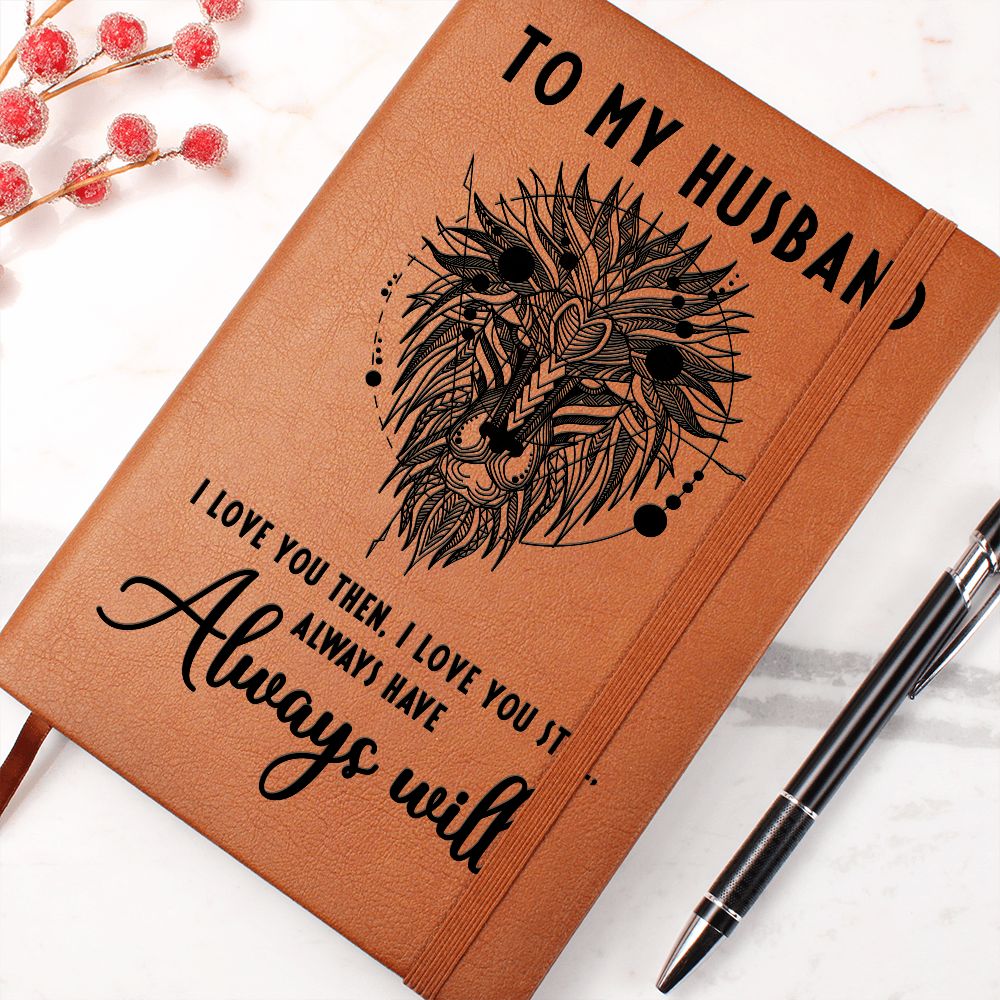 TO MY HUSBAND
I LOVE YOU THEN, I LOVE YOU ST
ALWAYS HAVE
Always will